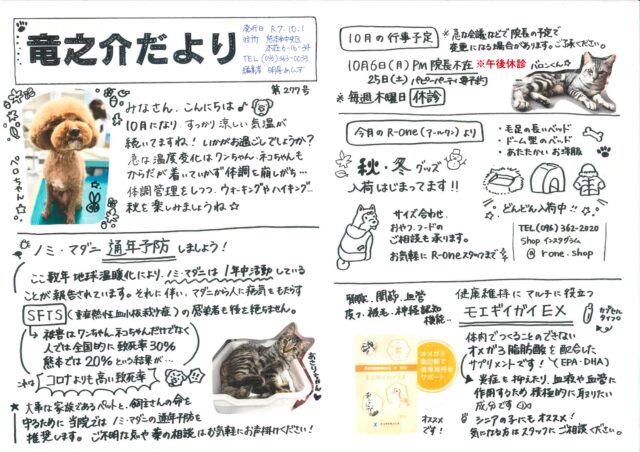 竜之介だより
発行日 R7.10.1
住所 熊本市中央区
本荘6-16-34
TEL (096)363-0033
第277号
みなさん、こんにちは♪
10月になり、すっかり涼しい気温が
続いてますね！いかがお過ごしでしょうか？
急な温度変化はワンちゃん、ネコちゃんも
からだが着いていかず体調を崩しがち…
体調管理をしつつ、ウォーキングやハイキング
秋を楽しみましょうね☆
ノミ・マダニ 通年予防 しましょう！
ここ数年 地球温暖化により、ノミ・マダニは1年中活動している
ことが報告されています。それに伴い、マダニから人に病気をもたらす
SFTS (重症熱性血小板減少症)の感染者も後を絶ちません。
→被害はワンちゃん、ネコちゃんだけでなく
人では全国的に致死率30%
熊本では20%という結果が…
これは コロナよりも高い致死率
あさりちゃん
★大事な家族であるペットと、飼主さんの命を
守るために当院ではノミ・マダニの通年予防を
推奨します。ご不明な点や薬の相談はお気軽にお声掛けください！
10月の行事予定
※急な会議などで院長の予定で
変更になる場合があります。ご了承ください。
10月6日(月)PM 院長不在 ※午後休診
25日(土) パピーパーティ 要予約
※毎週木曜日 休診
バロンくん☆
今月のR-One(アールワン)より
秋・冬グッズ
入荷はじまってます!!
・毛足の長いベッド
・ドーム型のベッド
・あたたかいお洋服
どんどん入荷中!!
サイズ合わせ、
おやつ、フードの
ご相談も承ります。
お気軽にR-Oneスタッフまで
TEL(096)362-2020
Shop インスタグラム
@ rone.shop
関節、血管
皮フ、被毛、神経認知
機能…
健康維持にマルチに役立つ
モエギイガイEX
カプセル
タイプ
オメガ3
脂肪酸で
健康維持を
サポート
オススメ
です！
体内でつくることのできない
オメガ3脂肪酸を配合した
サプリメントです！(EPA・DHA)
★炎症を抑えたり、血液や血管に
作用するため積極的に取りたい
成分です
シニアの子にもオススメ！
気になる方はスタッフにご相談ください。